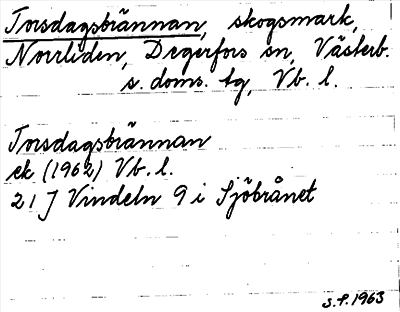 Torsdagsbrännan, skogsmark,
Norrliden, Degerfors sn, Västerb.
s. doms. tg, Vb. l.
Torsdagsbrännan
ek (1962) Vb. l.
21 J Vindeln 9 i Sjöbrånet
S.P. 1963